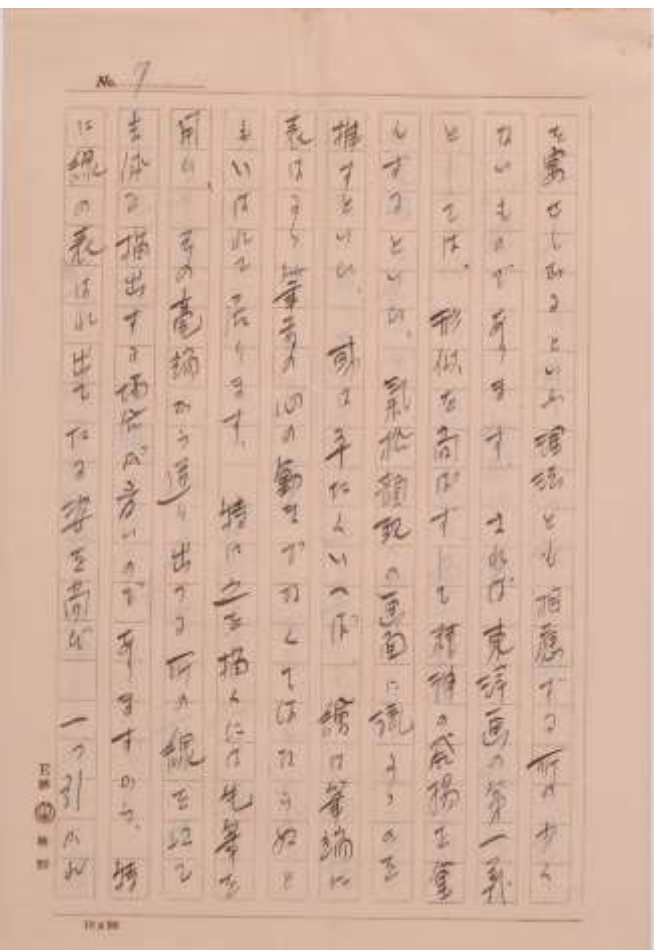 No. 7
を宿せしむるといふ理法とも相應ずる所の少く
ないものであります。されば東洋画の第一義
としては、形似を尚ばずして精神の発揚を重
んずるといひ、氣格韻致の画面に流るゝのを
推すといひ、或は手たくいへば 線は筆端に
表はるゝ筆者の心の動きでなくてはならぬと
もいはれて居ります。特に之を描くには先筆を
用ひ、その毫端から迸り出づる所の線を以て
描出する場合が多いのでありますから、特
は線の表はれ出でたる姿を尚び 一つ引かれ